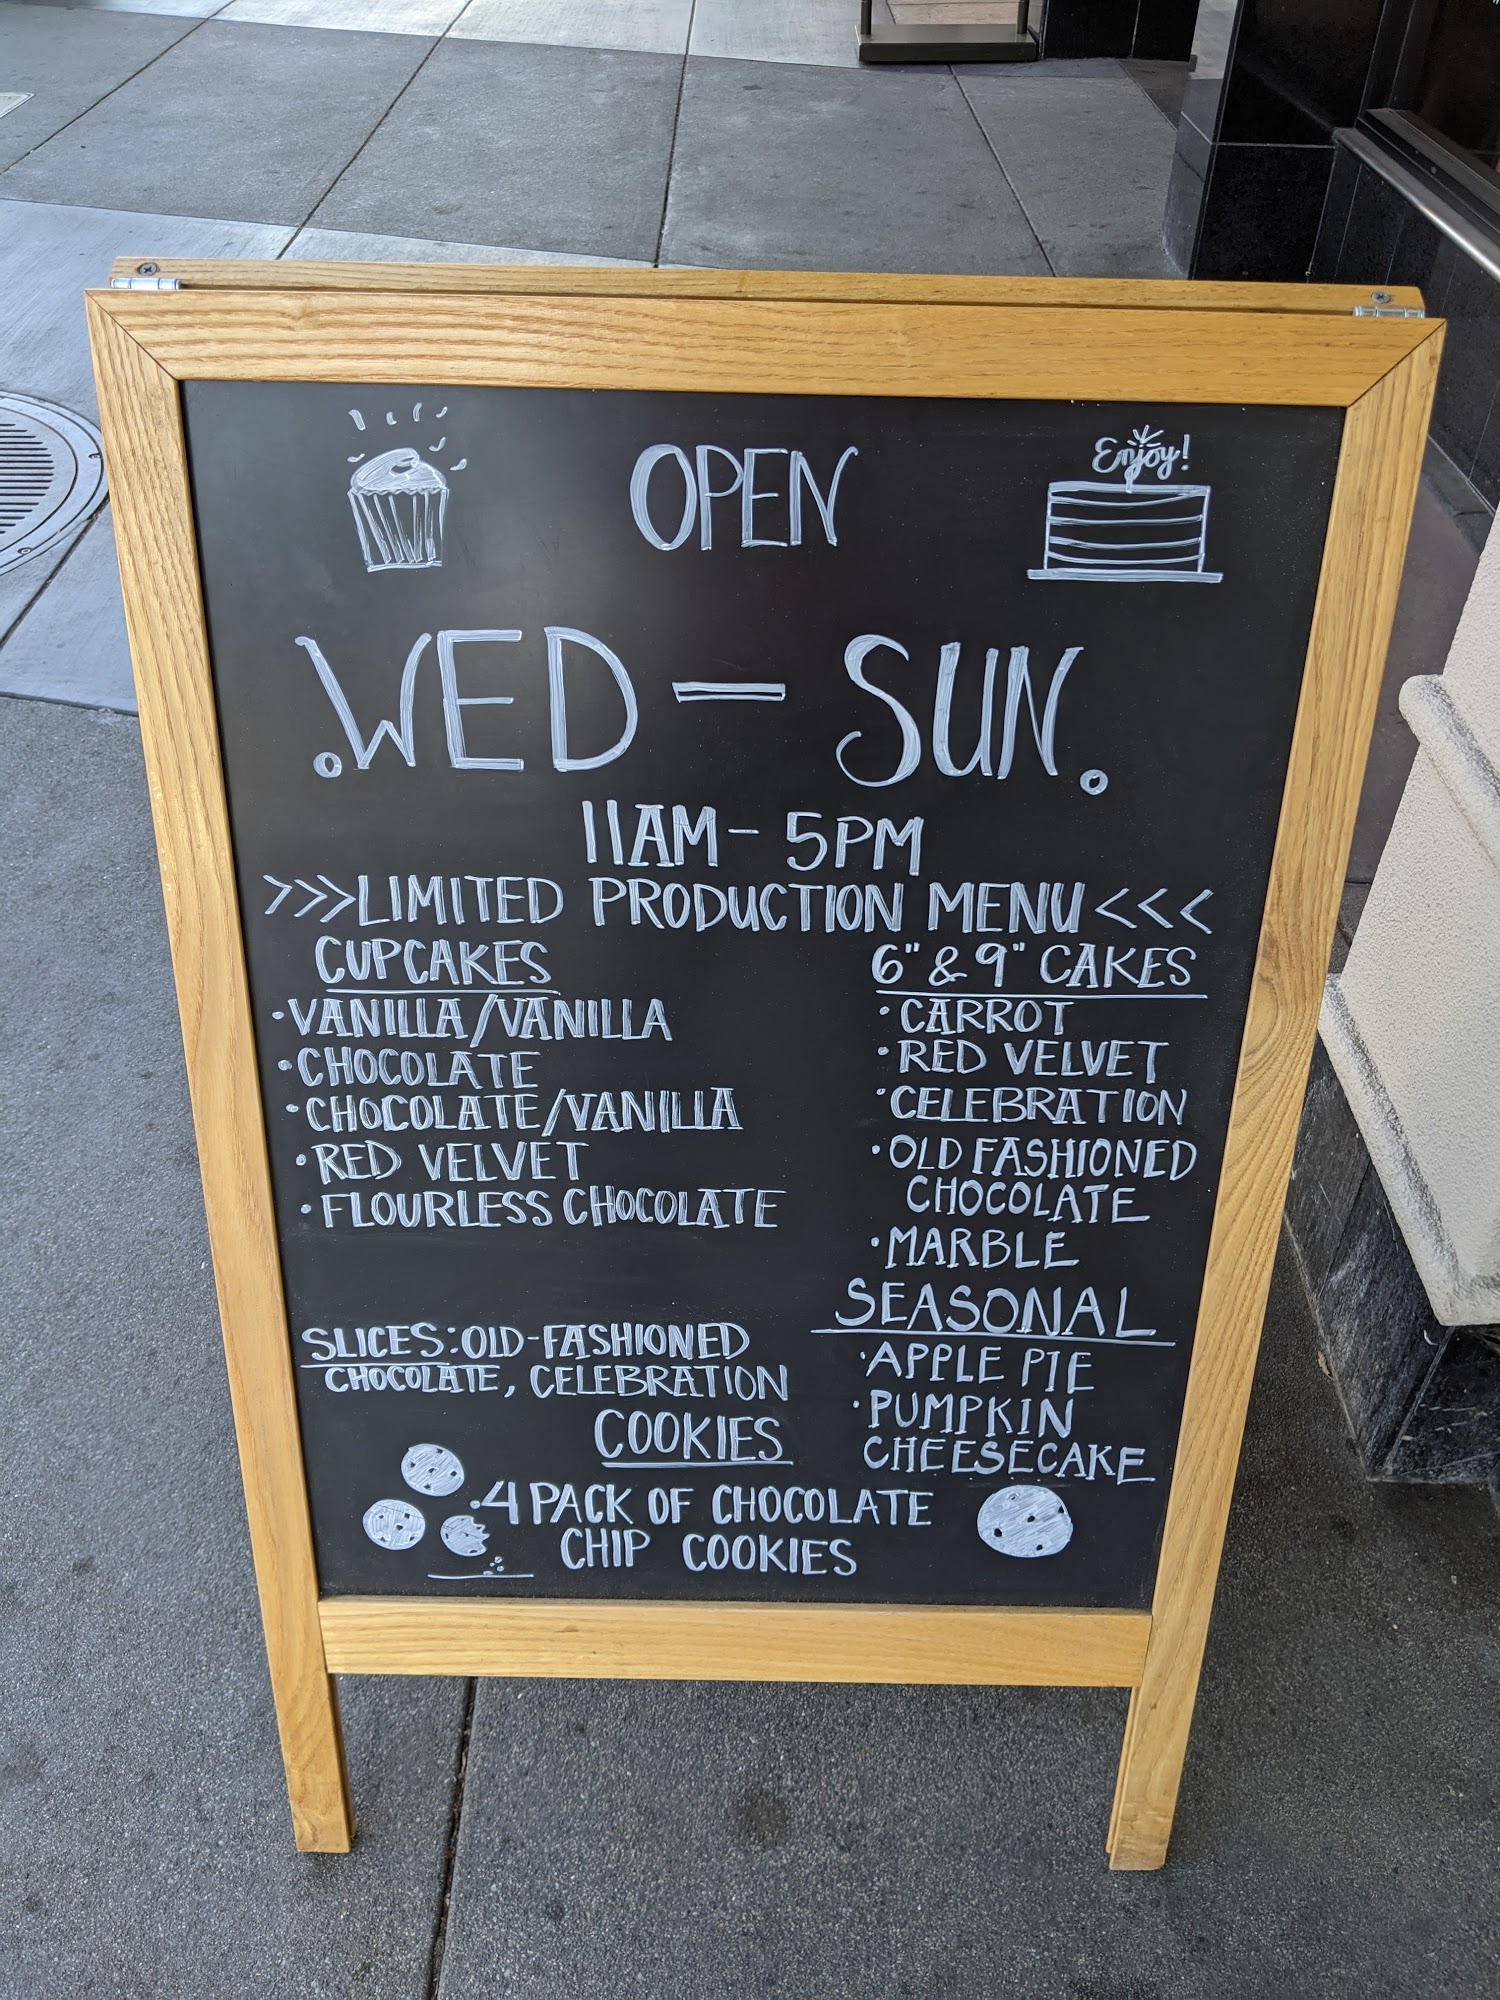 Enjoy!
OPEN
WED - SUN.
11AM - 5PM
>>>LIMITED PRODUCTION MENU<<<
CUPCAKES
• VANILLA/VANILLA
• CHOCOLATE
• CHOCOLATE/VANILLA
• RED VELVET
• FLOURLESS CHOCOLATE
SLICES: OLD-FASHIONED
CHOCOLATE, CELEBRATION
6" & 9" CAKES
• CARROT
• RED VELVET
• CELEBRATION
• OLD FASHIONED
CHOCOLATE
• MARBLE
SEASONAL
• APPLE PIE
• PUMPKIN
CHEESECAKE
COOKIES
• 4 PACK OF CHOCOLATE
CHIP COOKIES